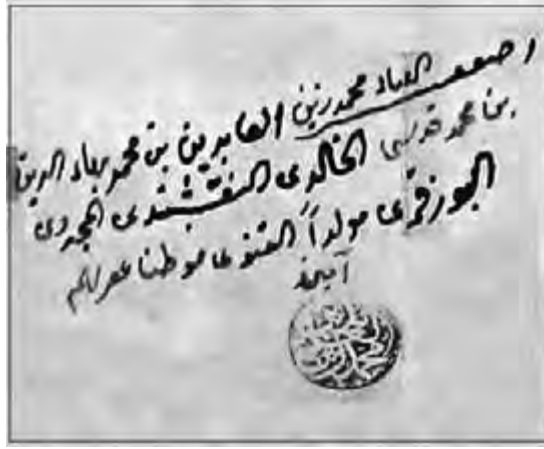 اضعف العباد محمد زين العابدين بن محمد بهاء الدين
بن محمد قدسى الخالدى النقشبندى المجددى
البوزقرى مولداً القنوى موطنا غفر لهم
آمين